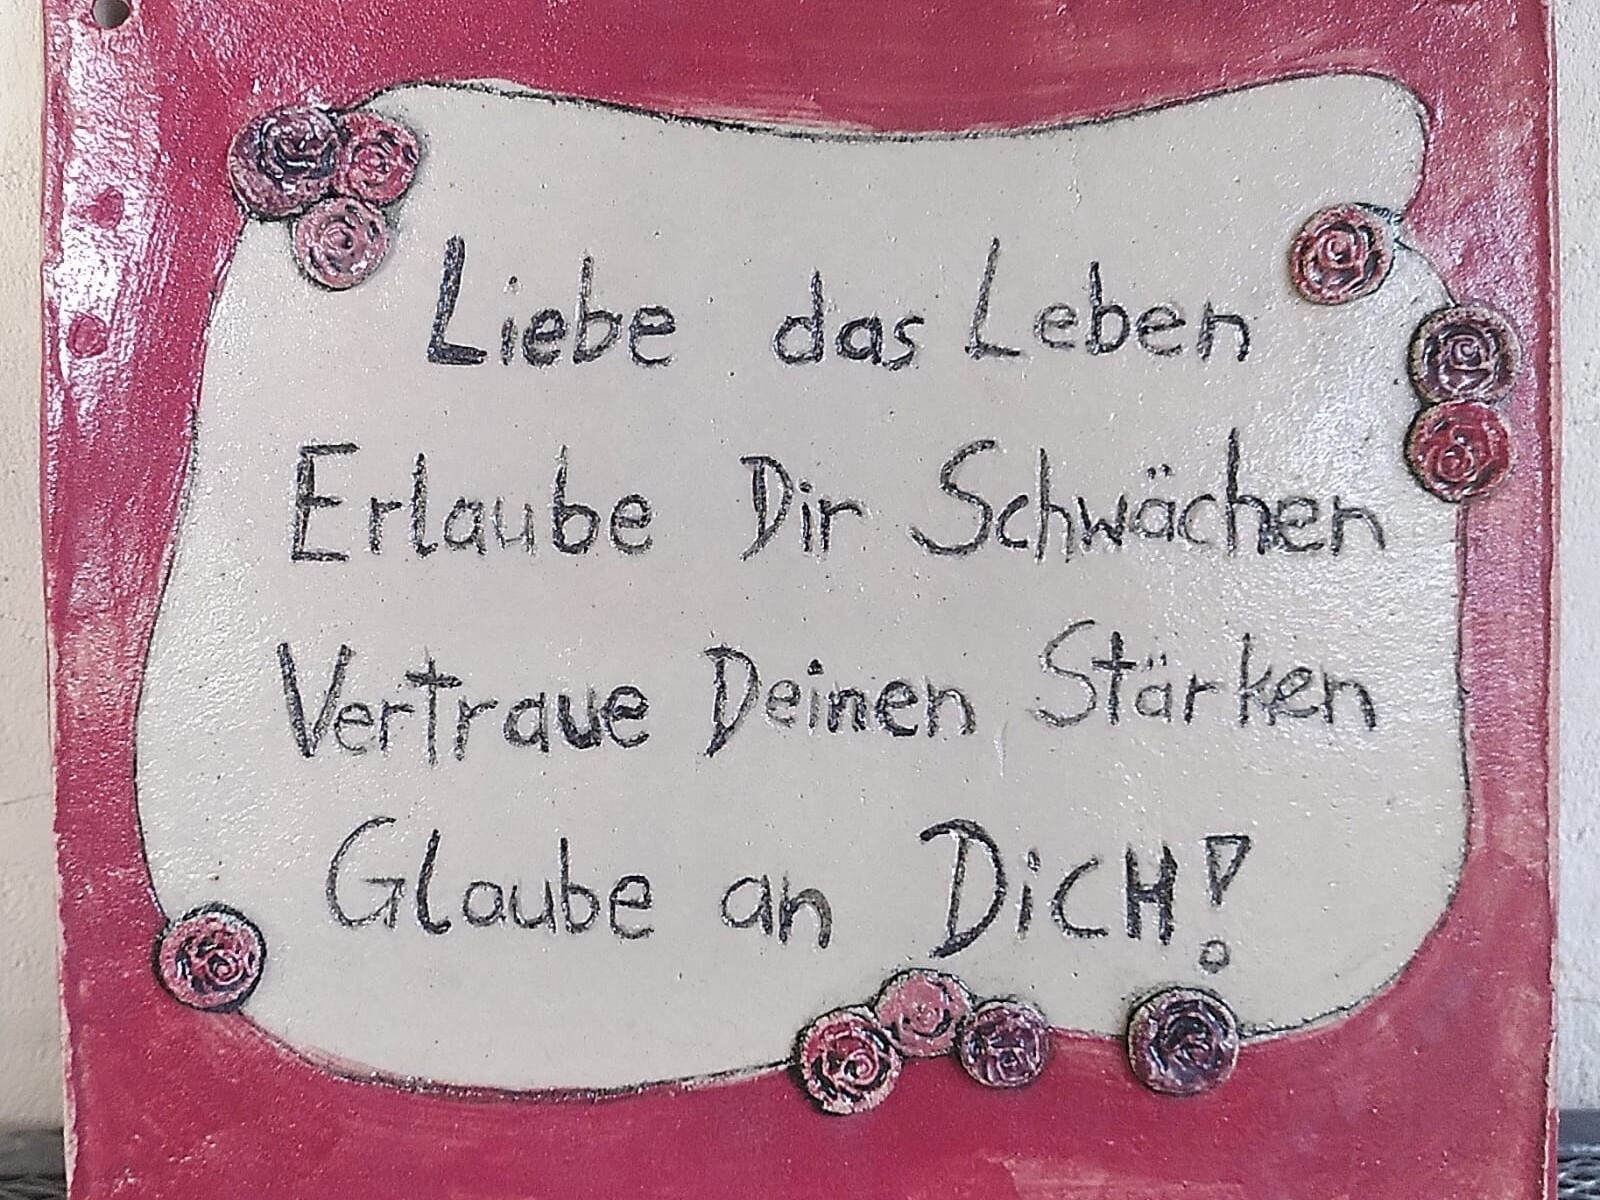 Liebe das Leben
Erlaube Dir Schwächen
Vertraue Deinen Stärken
Glaube an DiCH!